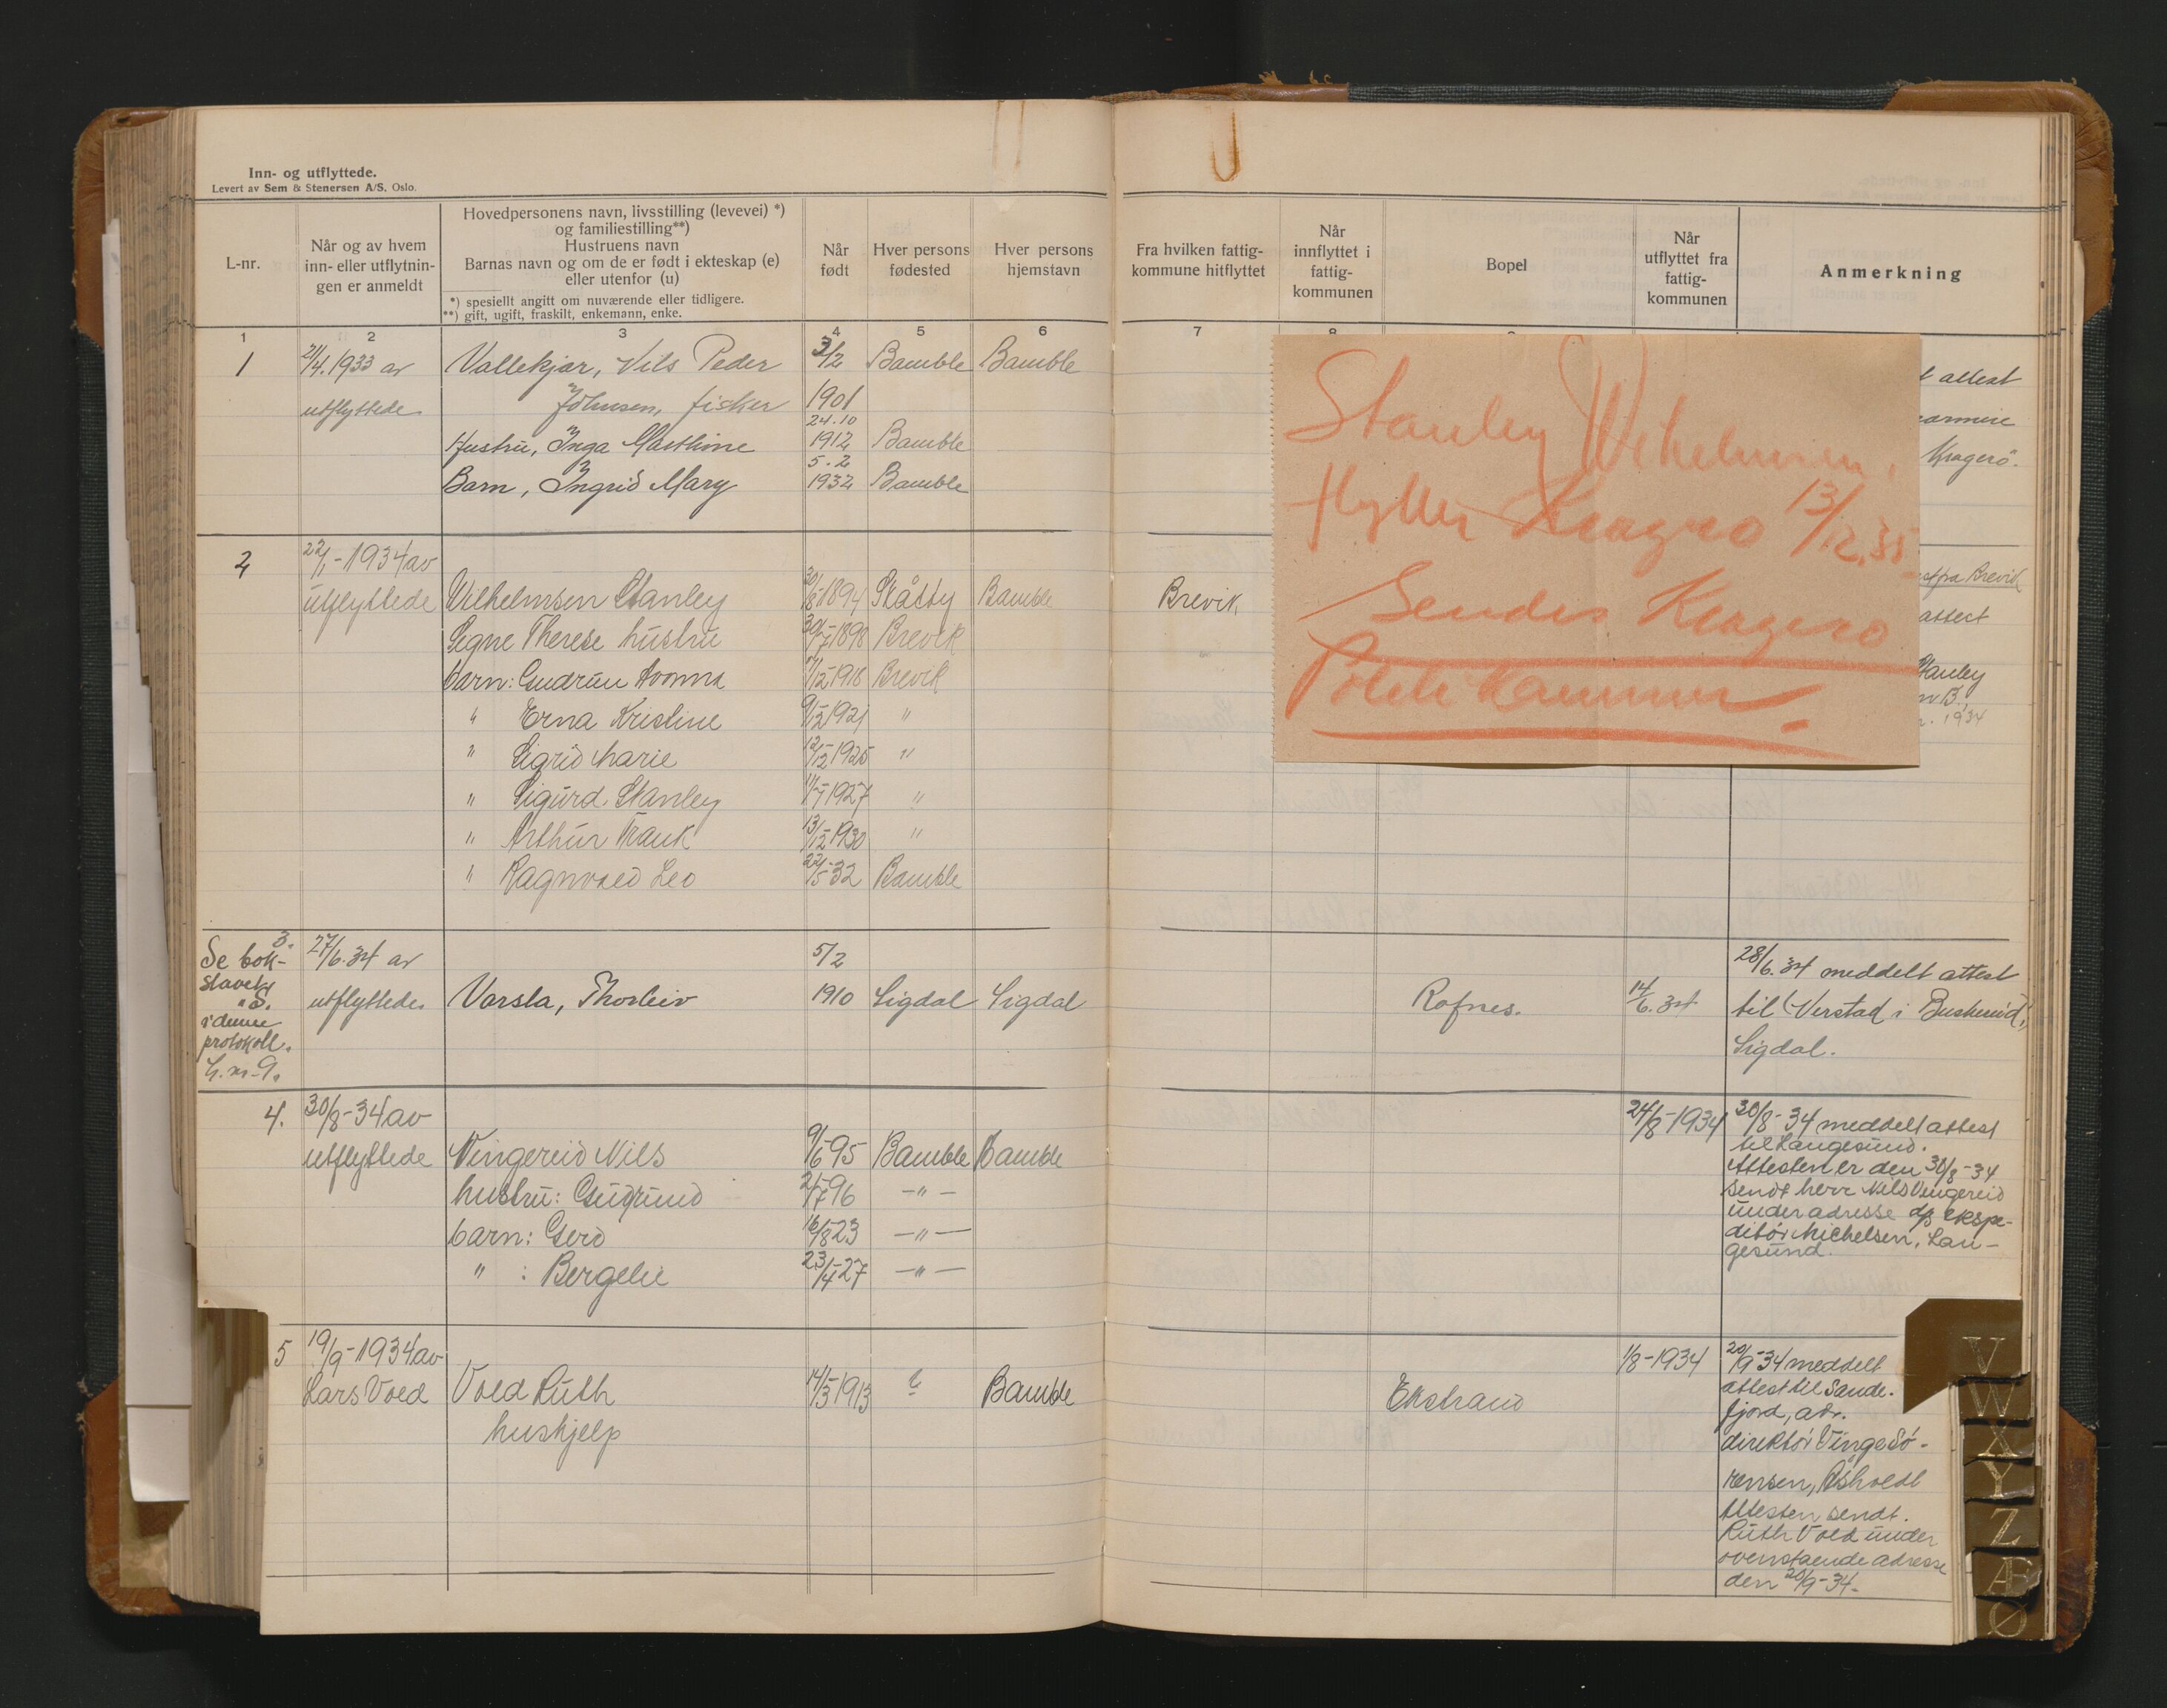 Inn- og utflyttede.
Levert av Sem & Stenersen A/S, Oslo.
L-nr.
Når og av hvem
inn- eller utflytnin-
gen er anmeldt
Hovedpersonens navn, livsstilling (levevei) *)
og familiestilling**)
Hustruens navn
Barnas navn og om de er født i ekteskap (e)
eller utenfor (u)
*) spesiellt angitt om nuværende eller tidligere.
**) gift, ugift, fraskilt, enkemann, enke.
Når
født
Hver persons
fødested
Hver persons
hjemstavn
Fra hvilken fattig-
kommune hitflyttet
Når
innflyttet i
fattig-
kommunen
Bopel
Når
utflyttet fra
fattig-
kommunen
Anmerkning
1 2 3 4 5 6 7 8
1 21/4.1933 av Vallekjær, Nils Peder 3/2 Bamble Bamble
utflyttede Johnsen, fisker 1901
24.10
Hustru, Inga Mathine 1912 Bamble
5.2
Barn, Ingrid Mary 1932 Bamble
attest
Kragerö.
Stanley Wilhelmsen,
flytter Kragerø 13/12.35
Sendes Kragerø
Politikammer.
2 22/1-1934 av
utflyttede Vilhelmsen Stanley 30/8-1894 Skåtøy Bamble Brevik
Signe Therese hustru 30/7-1898 Brevik
barn: Gudrun Avonna 17/12-1918 Brevik
" Erna Kristine 9/12-1921 "
" Sigrid Marie 12/12-1925 "
" Sigurd Stanley 11/7-1927 "
" Arthur Frank 13/12-1930 "
" Ragnvald Leo 22/5-32 Bamble
fra Brevik
attest
Stanley
1934
3.
Se bok-
staven
"S"
i denne
protokoll.
L.nr. 9.
27/6.34 av 5/2
utflyttede Varsla, Thorleiv 1910 Sigdal Sigdal Rofnes. 14/6.34
28/6.34 meddelt attest
til (Verstad i Buskerud),
Sigdal.
4. 30/8-34 av
utflyttede Vingereid Nils 9/6-95 Bamble Bamble 24/8-1934
hustru: Gudrund 21/7-96 -"-
barn: Gerd 16/8-23 -"-
" : Bergeliv 23/4-27 -"-
30/8-34 meddelt attest
til Langesund.
Attesten er den 30/8-34
sendt herr Nils Vingereid
under adresse d/s ekspe-
ditör Michelsen, Lan-
gesund.
5 19/9-1934 av
Lars Vold Vold Ruth 14/3-1913 " Bamble Ekstrand 1/8-1934
hushjelp
20/9-34 meddelt
attest til Sande-
fjord, adr.
direktör Vinge Sö-
rensen, Åsholdt
Attesten sendt
Ruth Vold under
ovenstaende adresse
den 20/9-34.
V
W
X
Y
Z
Æ
Ø